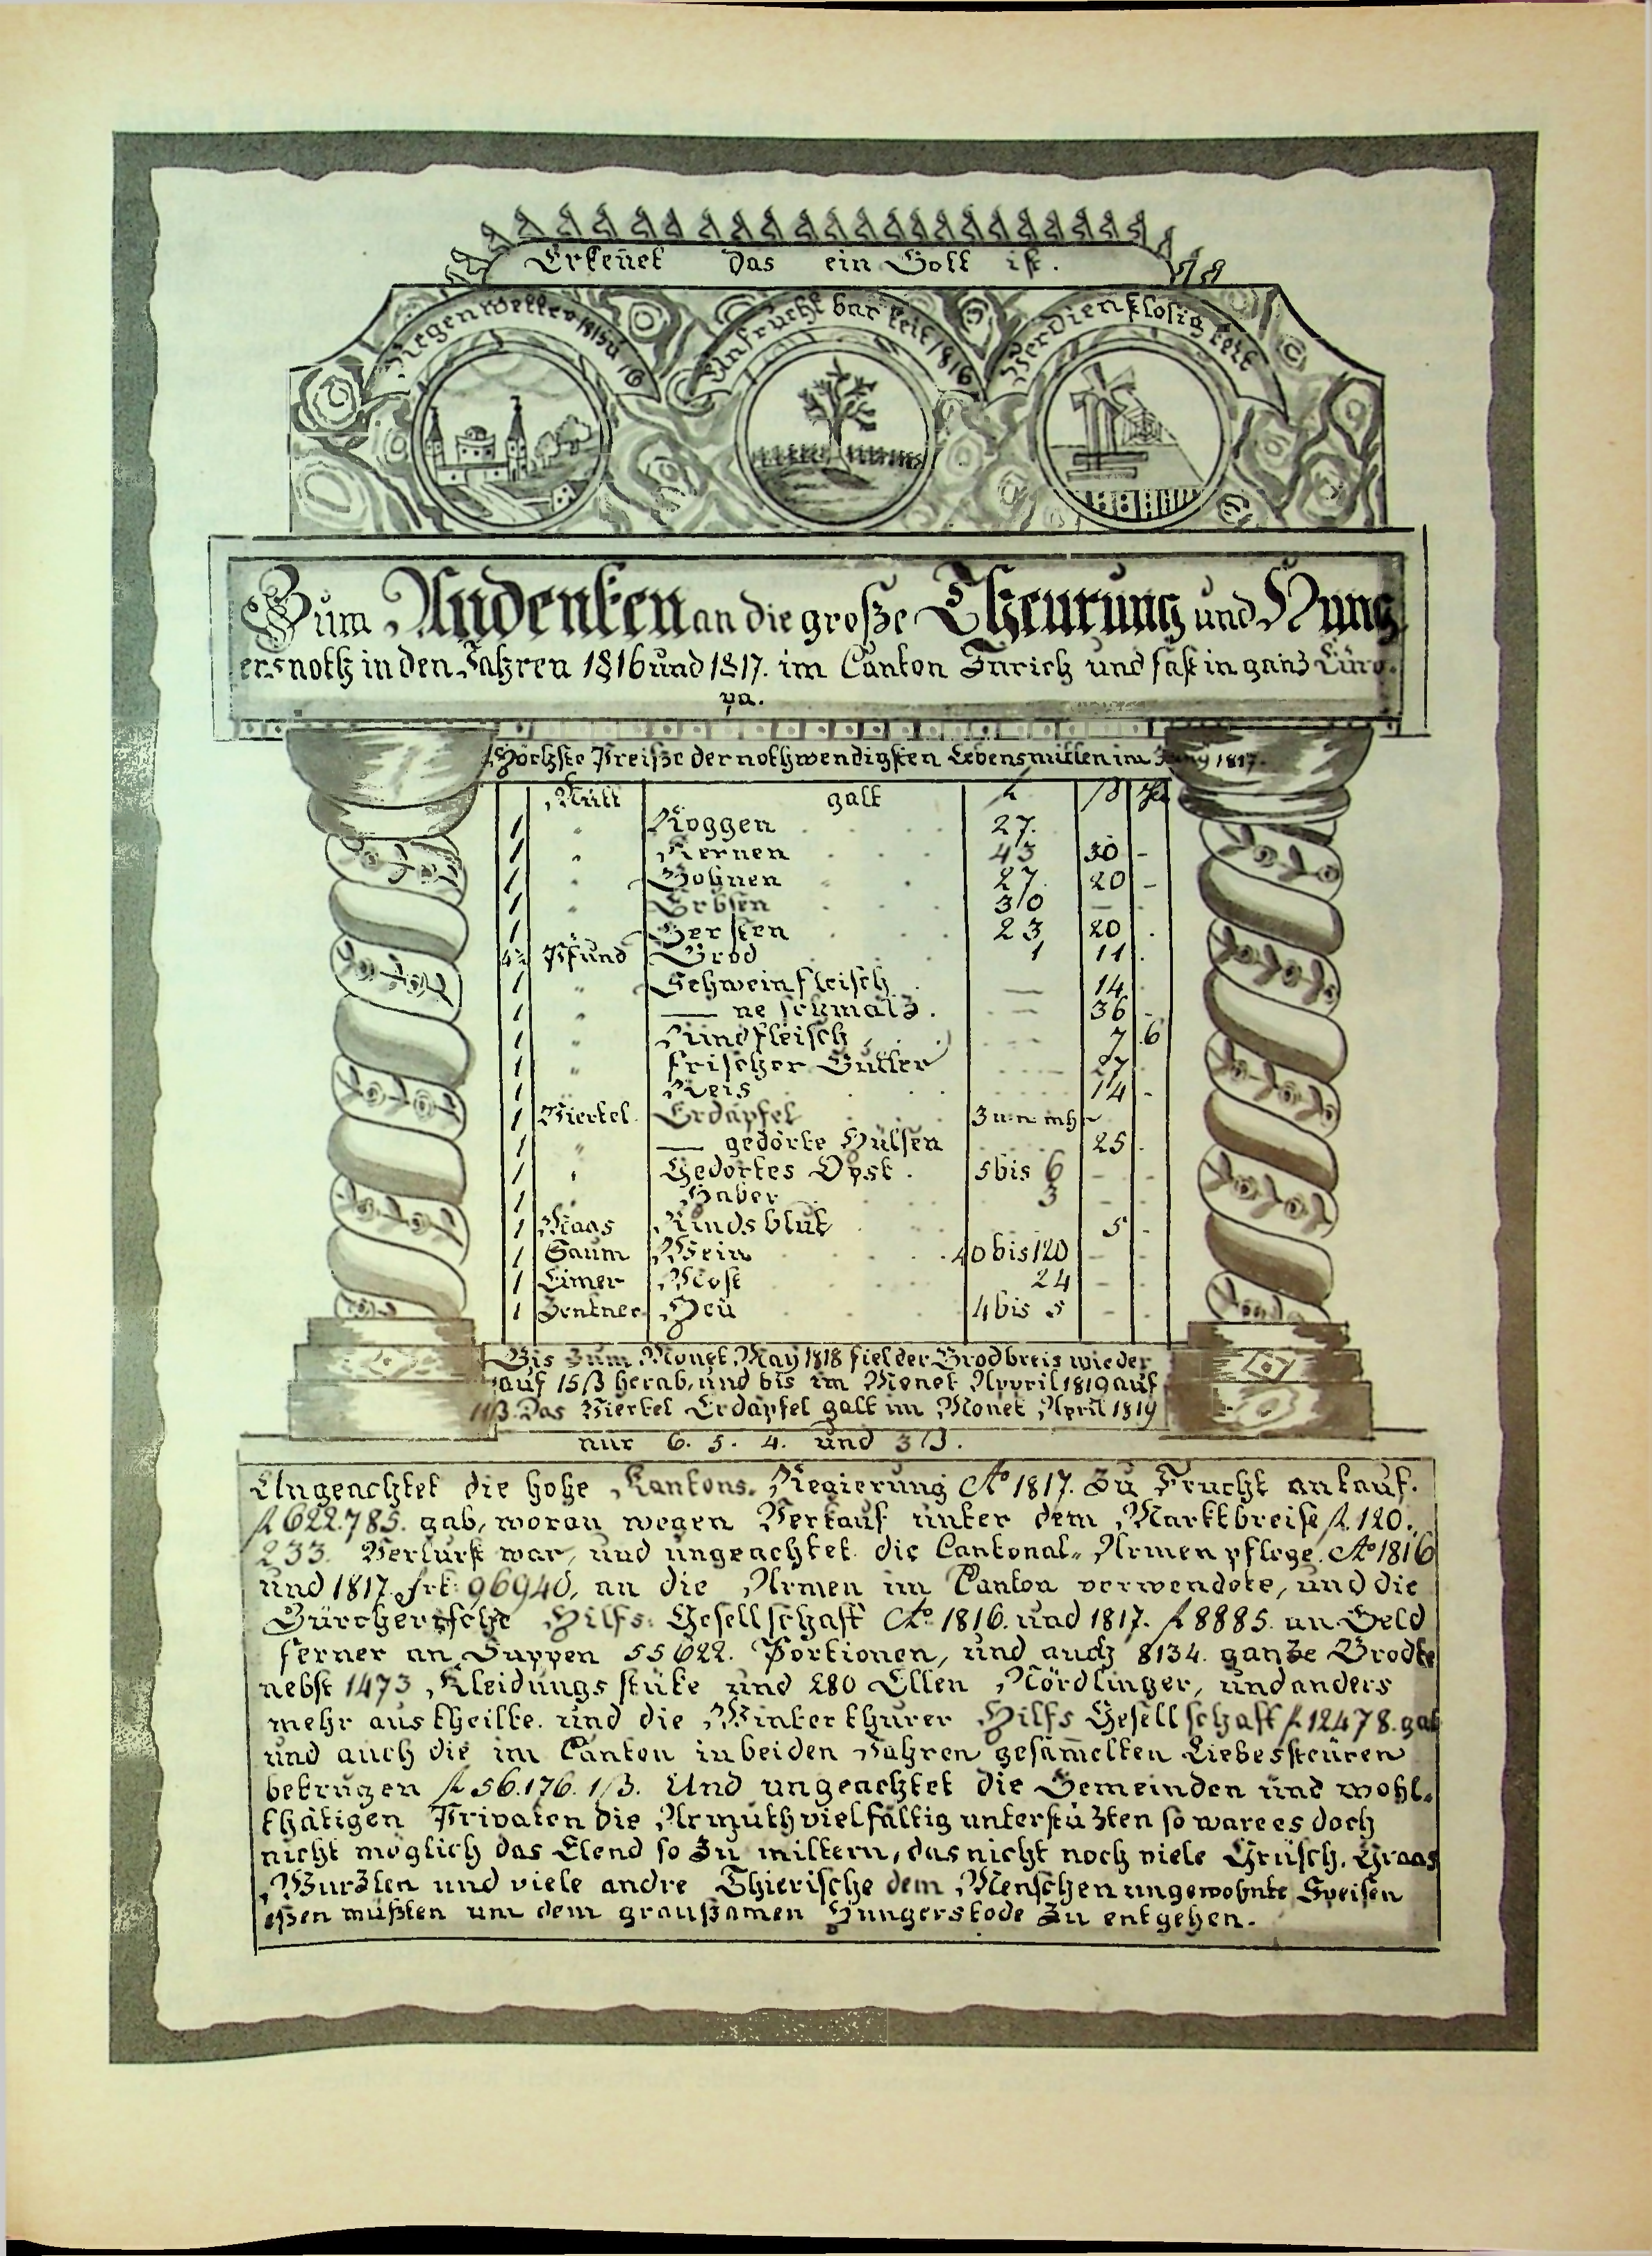 Erkeñet das ein Gott ist.
Regenwetter 1815 u 16
Unfruchtbarkeit 1816
Verdienstlosigkeit
Zum Andenken an die große Theurung und Hung
ersnoth in den Jahren 1816 und 1817. im Canton Zürich und fast in ganz Euro-
pa.
Höchste Preiße der nothwendigsten Lebensmitlen im Juny 1817.
Mütt galt fl ß hl
1 " Roggen 27.
1 " Kernen 43 30 -
1 " Bohnen 27. 20 -
1 " Erbsen 30 - -
1 " Gersten 23 20 .
4½ Pfund Brod 1 11.
1 " Schweinfleisch — 14.
1 " — ne schmalz. — 36 -
1 " Rindfleisch — 7 6
1 " frischer Butter 27
1 " Reis 14 -
1 Viertel Erdäpfel 3 u: n mhr
1 " — gedörte Hülsen 25.
1 " Gedörtes Opst. 5 bis 6 - -
1 Haber 3
1 Maas Rindsblut 5 -
1 Saum Wein 40 bis 120 -
1 Eimer Most 24 -
1 Zentner Heu 4 bis 5 -
Bis zum Monet May 1818 fiel der Brodbreis wieder
auf 15 ß herab, und bis im Monet Appril 1819 auf
11 ß. Das Viertel Erdäpfel galt im Monet April 1819
nur 6. 5. 4. und 3 ß.
Ungeachtet die hohe Kantons. Regierung Ao 1817. zu Frucht ankauf.
fl 622.785. gab, woran wegen Verkauf unter dem Marktbreise fl. 120.
233. Verlurst war, und ungeachtet die Cantonal„ Armenpflege. Ao 1816
und 1817. frk: 96940, an die Armen im Canton verwendete, und die
Zürcherische Hilfs: Gesellschaft Ao. 1816. und 1817. fl 8885. an Geld
ferner an Suppen 55622. Portionen, und auch 8134. ganze Brodte
nebst 1473 Kleidungsstüke und 280 Ellen Nördlinger, und anders
mehr austheilte. und die Winterthurer Hilfs Gesellschaft fl 12478. gab
und auch die im Canton in beiden Jahren gesam̄elten Liebessteüren
betrugen fl 56.176. 1 ß. Und ungeachtet die Gemeinden und wohl-
thätigen Privaten die Armuth vielfältig unterstüzten so ware es doch
nicht möglich das Elend so zu miltern, das nicht noch viele Grüsch, Graas
Wurzlen und viele andre Thierische dem Menschen ungewohnte Speisen
eßen müßten um dem graußamen Hungerstode zu entgehen.